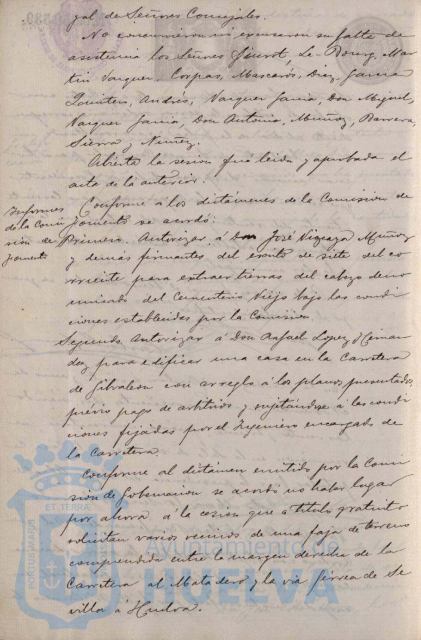 gal de Señores Concejales.
No concurrieron ni excusaron su falta de
asistencia los Señores Siurot, Le Bourg, Mar
tin Vazquez, Corpas, Mascarós, Diaz, Garcia
Quintero, Andrés, Vazquez Garcia, Don Miguel,
Vazquez Garcia, Don Antonio, Muñoz, Barrera,
Sierra y Nuñez.
Abierta la sesion fué leida y aprobada el
acta de la anterior.
Informes
de la Comi
sión de
Fomento
Conforme á los dictámenes de la Comision de
Fomento se acordó:
Primero. Autorizar á Don José Muñoz
y demás firmantes del escrito de siete del co
rriente para extraer tierras del cabezo deno
minado del Cementerio Viejo bajo las condi
ciones establecidas por la Comision.
Segundo. Autorizar á Don Rafael Lopez Hernan
dez para edificar una casa en la Carretera
de Gibraleon con arreglo á los planos presentados,
previo pago de arbitrios y sujetándose á las condi
ciones fijadas por el Ingeniero encargado de
la Carretera.
Conforme al dictámen emitido por la Comi
sion de Gobernacion se acordó no haber lugar
por ahora á la cesión que á título gratuito
solicitan varios vecinos de una faja de terreno
comprendida entre la margen derecha de la
Carretera al Matadero y la via ferrea de Se
villa á Huelva.
PORTUS MARIS
ET TERRÆ
Ayuntamiento de
HUELVA